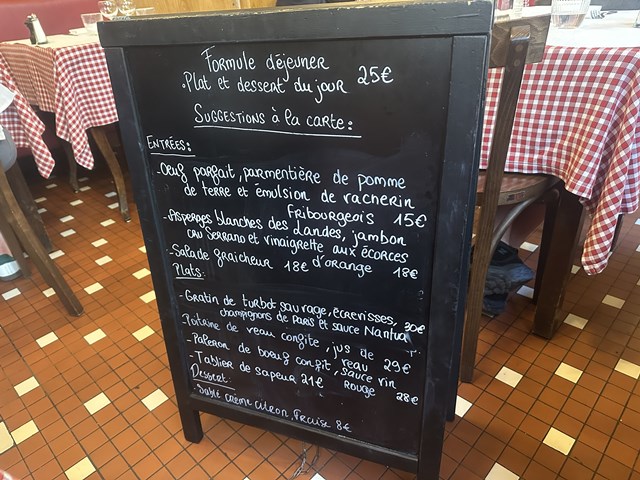 Formule déjeuner
.Plat et dessert du jour 25€
SUGGESTIONS à la carte:
ENTRÉES:
-Oeuf parfait, parmentière de pomme
de terre et émulsion de vacherin
Fribourgeois 15€
-Asperges blanches des Landes, jambon
cru Serrano et vinaigrette aux écorces
d'orange 18€
-Salade fraicheur 18€
Plats:
-Gratin de turbot sauvage, écrevisses, 30€
champignons de Paris et sauce Nantua
Poitrine de veau confite, jus de
veau 29€
-Paleron de boeuf confit, sauce vin
rouge 28€
-Tablier de sapeur 21€
Dessert:
-Sablé crème citron, Fraise 8€